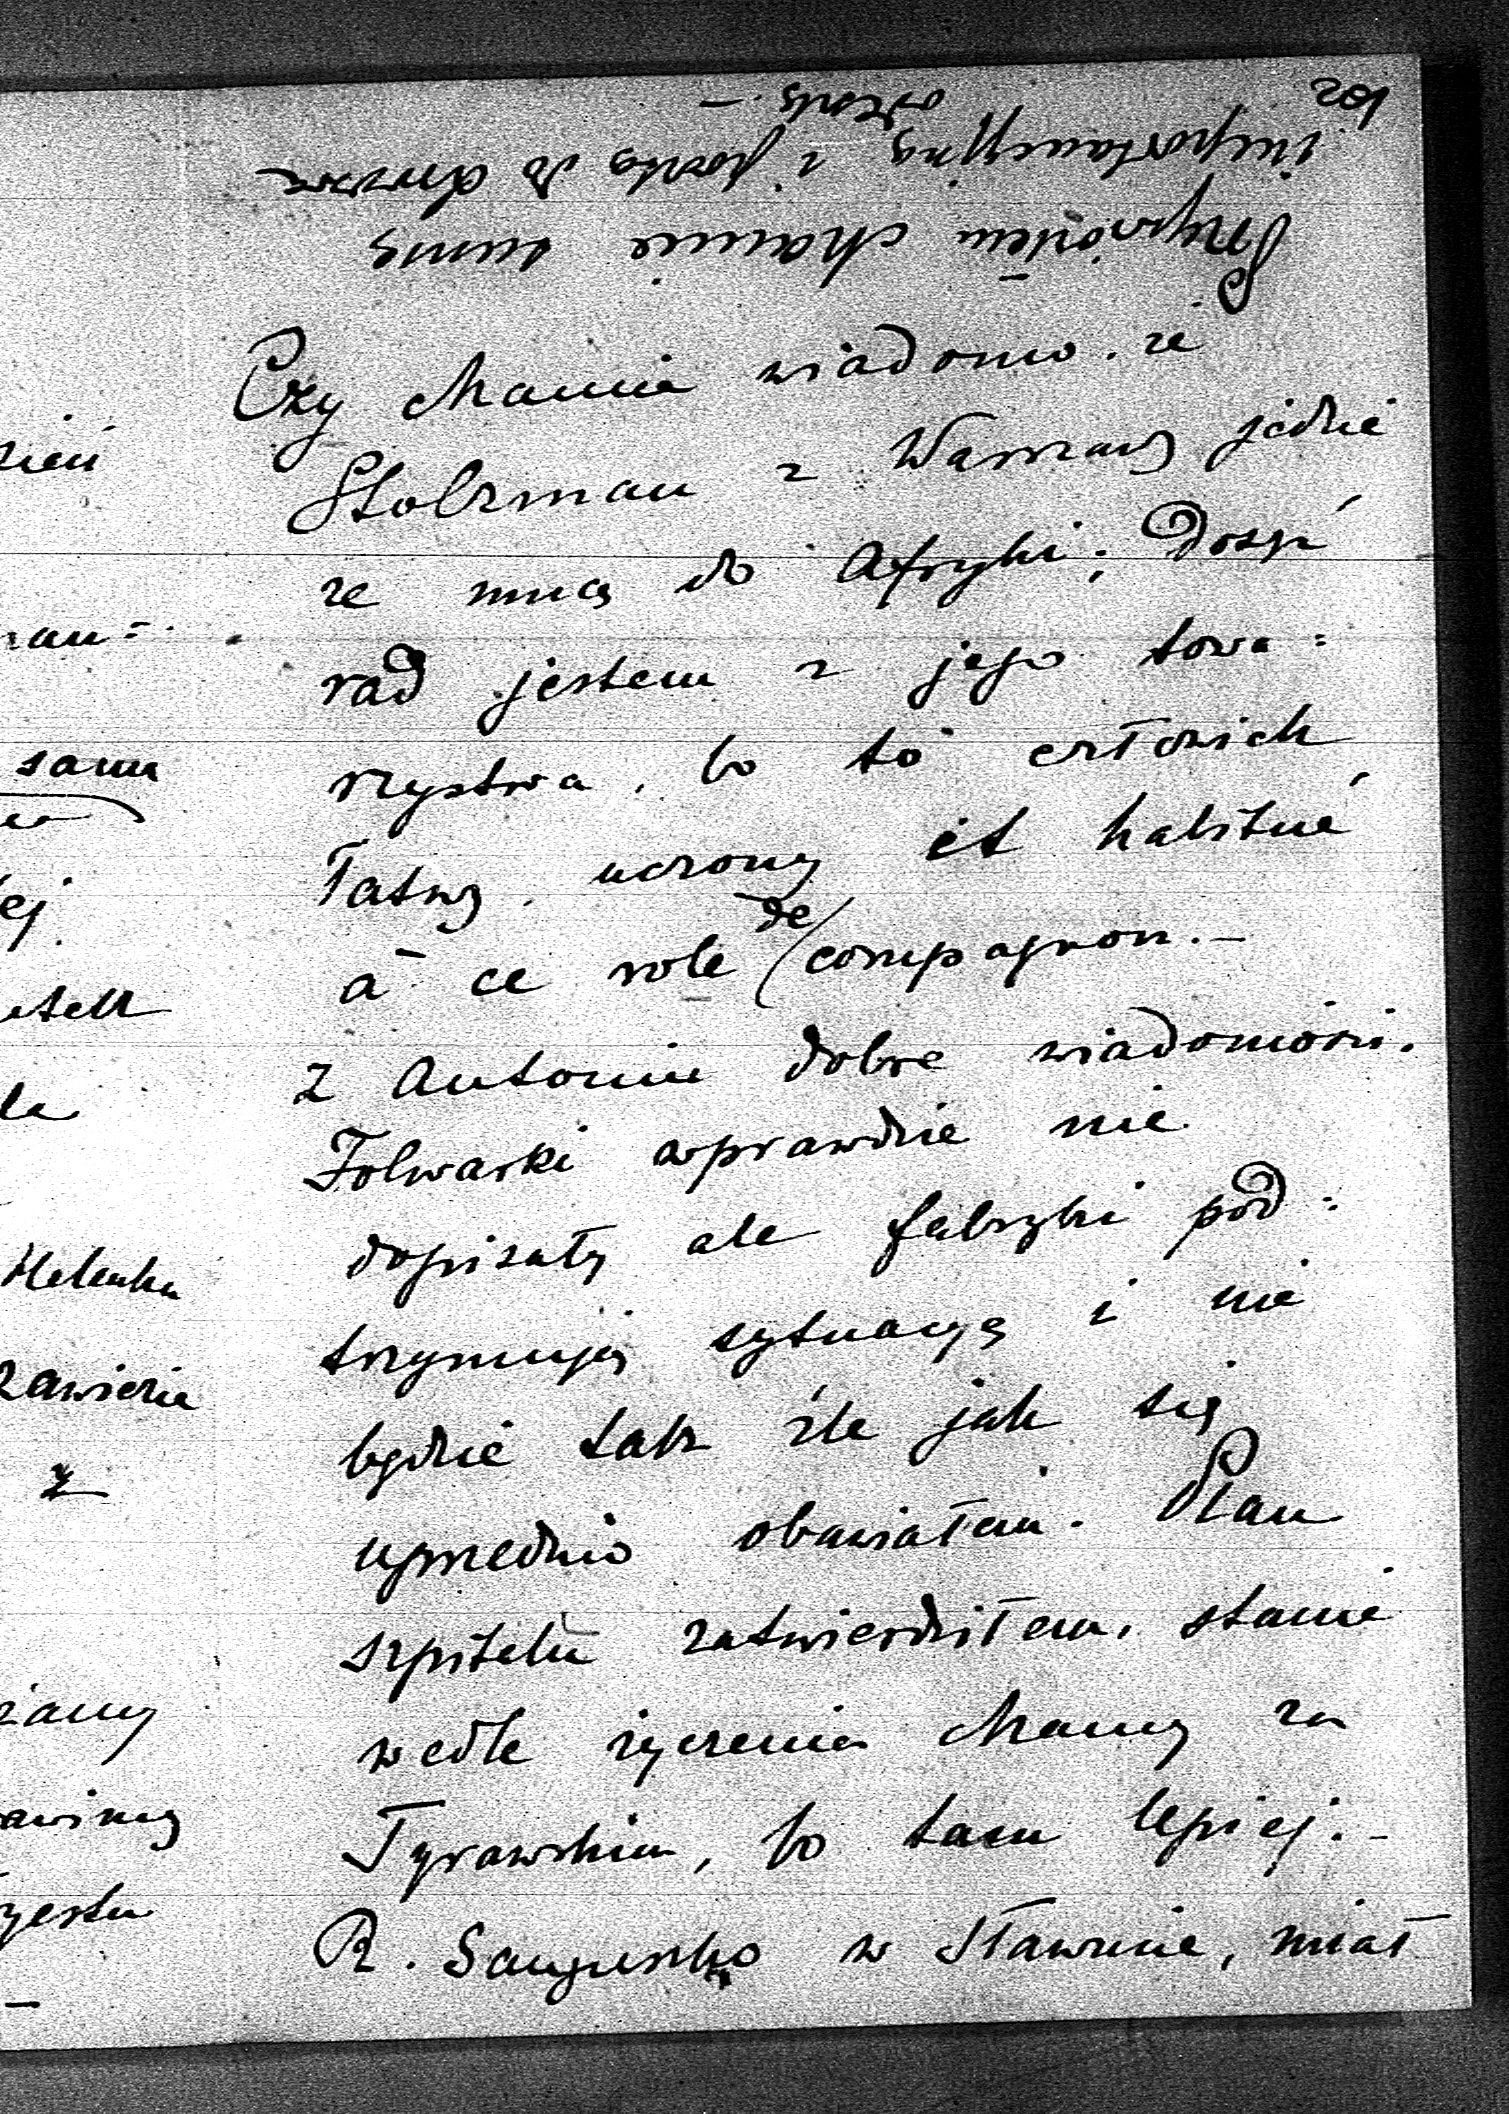 201
Przywiózłem Mamie
i poszlę do
Czy Mamie wiadomo, że
Stolzman z Warszawy jedzie
ze mną do Afryki; Dosyć
rad jestem z jego towa=
rzystwa, bo to człowiek
łatwy, uczony et habitué
à ce role de compagnon.—
Z Antonin dobre wiadomości.
Folwarki wprawdzie nie
dopisały ale fabryki pod=
trzymują sytuacyę i nie
będzie tak źle jak się
uprzednio obawiałem. Plan
szpitalu zatwierdziłem, stanie
wedle życzenia Mamy za
Tyrawskim, bo tam lepiej.—
R. Sanguszko w Sławucie, miał
zień
sama
ej
Helenka
zawiezie
z